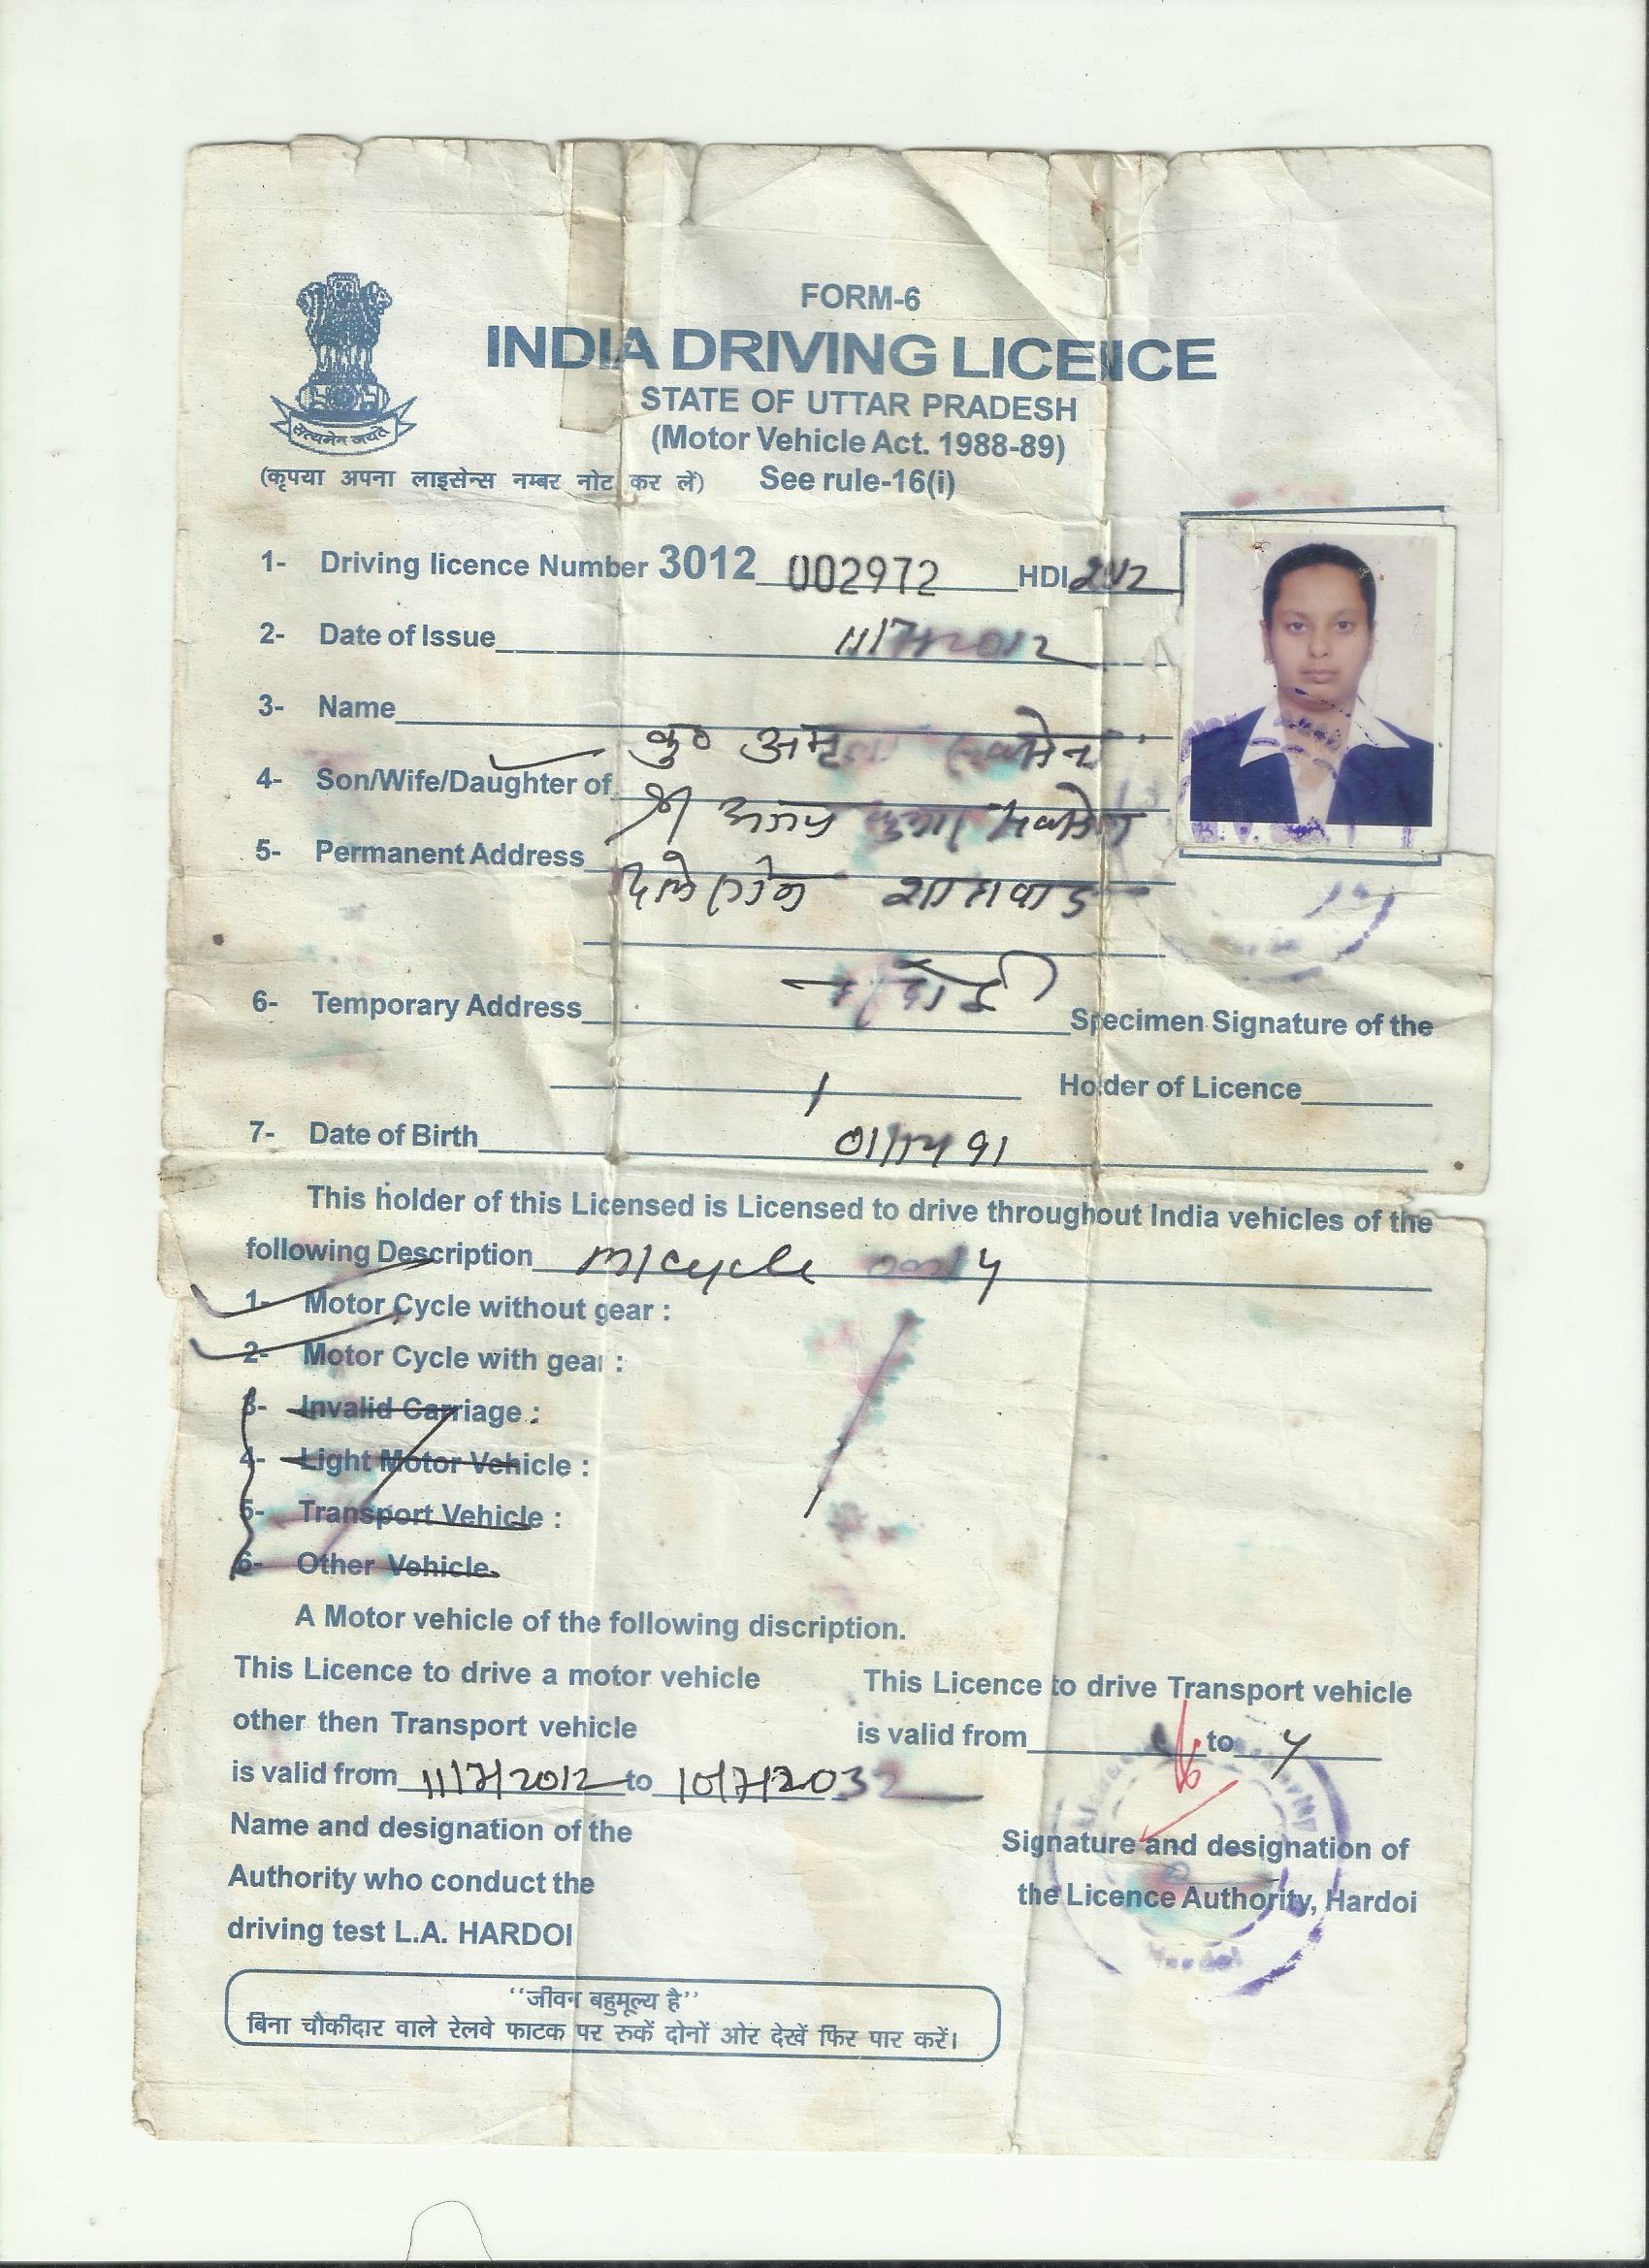 सत्यमेव जयते
FORM-6
INDIA DRIVING LICENCE
STATE OF UTTAR PRADESH
(Motor Vehicle Act. 1988-89)
(कृपया अपना लाइसेन्स नम्बर नोट कर लें) See rule-16(i)
1- Driving licence Number 3012 002972 HDI
2- Date of Issue 11/7/2012
3- Name कु०
4- Son/Wife/Daughter of श्री
5- Permanent Address
6- Temporary Address Specimen Signature of the
Holder of Licence
7- Date of Birth 91
This holder of this Licensed is Licensed to drive throughout India vehicles of the
following Description M/cycle only
1- Motor Cycle without gear :
2- Motor Cycle with gear :
3- Invalid Carriage :
4- Light Motor Vehicle :
5- Transport Vehicle :
6- Other Vehicle.
A Motor vehicle of the following discription.
This Licence to drive a motor vehicle
other then Transport vehicle
is valid from 11/7/2012 to 10/7/2032
This Licence to drive Transport vehicle
is valid from to
Name and designation of the
Authority who conduct the
driving test L.A. HARDOI
Signature and designation of
the Licence Authority, Hardoi
Hardoi
‘‘जीवन बहुमूल्य है’’
बिना चौकीदार वाले रेलवे फाटक पर रुकें दोनों ओर देखें फिर पार करें।